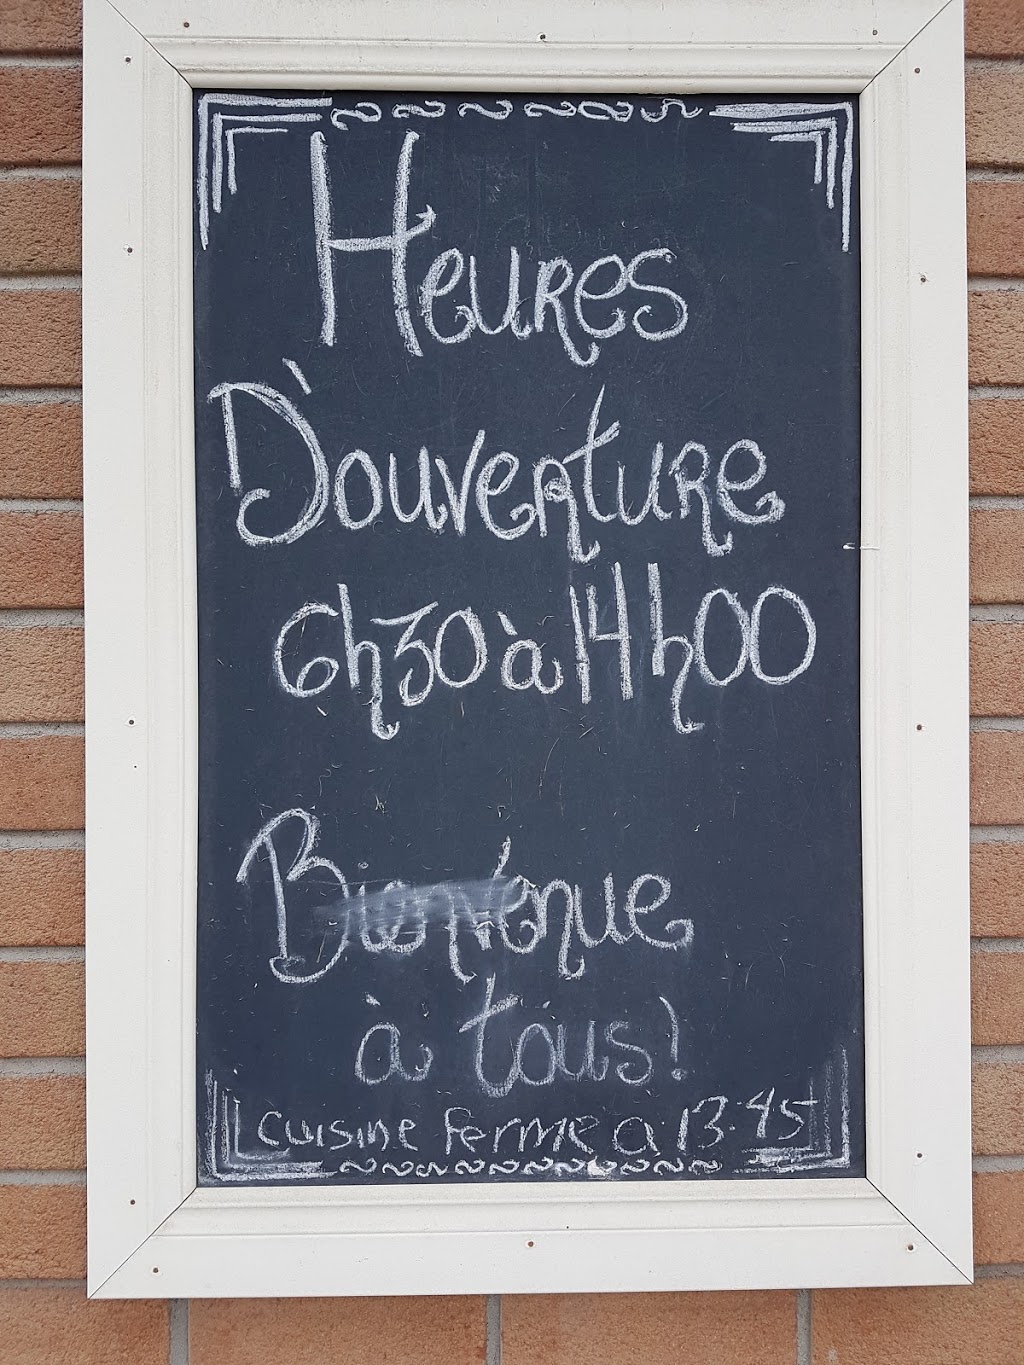 Heures
D'ouverture
6h30 à 14h00
Bienvenue
à tous!
cuisine ferme a 13:45